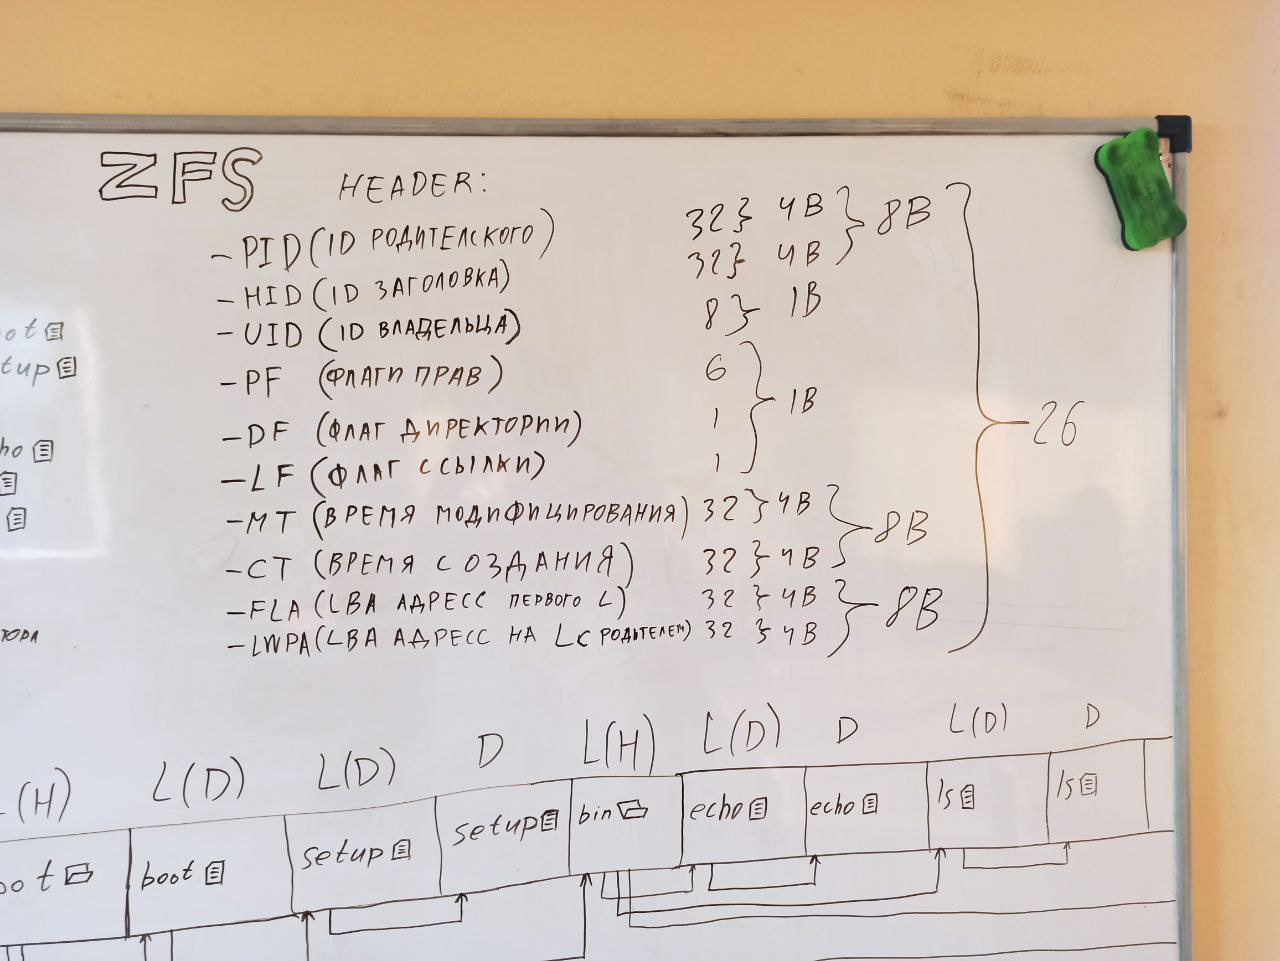 ZFS HEADER:
- PID (ID РОДИТЕЛСКОГО) 32 } 4B } 8B
- HID (ID ЗАГОЛОВКА) 32 } 4B
- UID (ID ВЛАДЕЛЬЦА) 8 } 1B
- PF (ФЛАГИ ПРАВ) 6 } 1B
- DF (ФЛАГ ДИРЕКТОРИИ) 1
- LF (ФЛАГ ССЫЛКИ) 1
26
- MT (ВРЕМЯ МОДИФИЦИРОВАНИЯ) 32 } 4B } 8B
- CT (ВРЕМЯ СОЗДАНИЯ) 32 } 4B
- FLA (LBA АДРЕСС ПЕРВОГО L) 32 } 4B } 8B
- LWPA (LBA АДРЕСС НА L С РОДИТЕЛЕМ) 32 } 4B
oot
tup
ho
ТОРА
L(H) L(D) L(D) D L(H) L(D) D L(D) D
oot boot setup setup bin echo echo ls ls